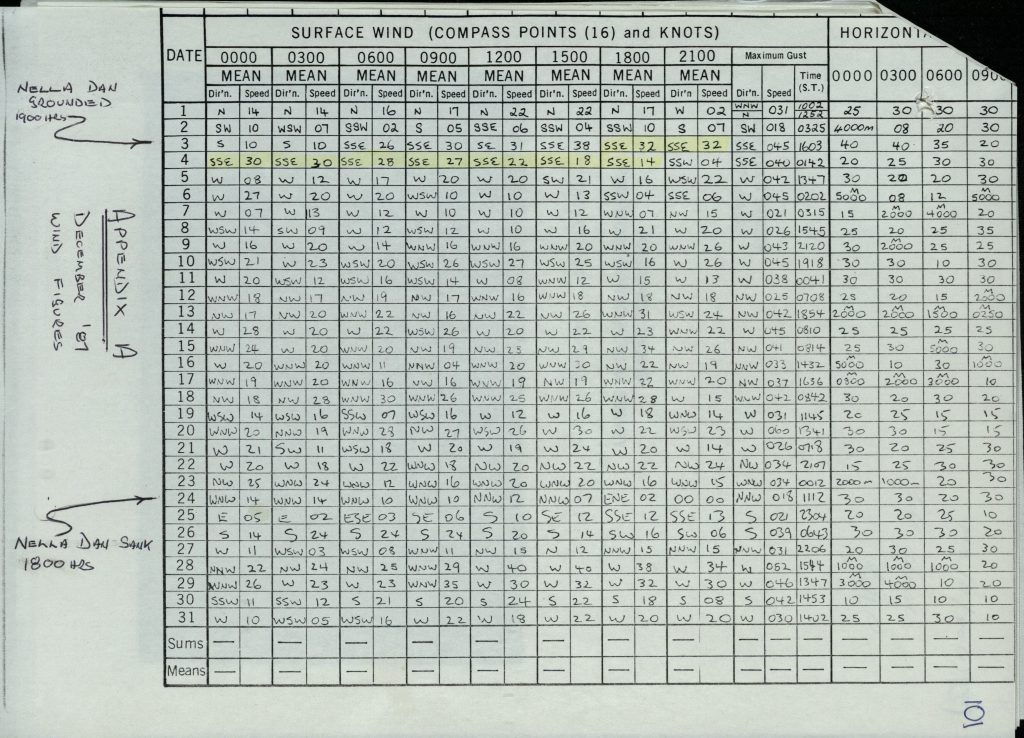 SURFACE WIND (COMPASS POINTS (16) and KNOTS) HORIZONTA
DATE 0000 0300 0600 0900 1200 1500 1800 2100 Maximum Gust 0000 0300 0600 0900
MEAN MEAN MEAN MEAN MEAN MEAN MEAN MEAN Time (S.T.)
Dir'n. Speed Dir'n. Speed Dir'n. Speed Dir'n. Speed Dir'n. Speed Dir'n. Speed Dir'n. Speed Dir'n. Speed Dir'n. Speed
NELLA DAN
GROUNDED
1900 HRS
1 N 14 N 14 N 16 N 17 N 22 N 22 N 17 W 02 WNW N 031 1002 1252 25 30 30 30
2 SW 10 WSW 07 SSW 02 S 05 SSE 06 SSW 04 SSW 10 S 07 SW 018 0325 4000m 08 20 30
3 S 10 S 10 SSE 26 SSE 30 SE 31 SSE 38 SSE 32 SSE 32 SSE 045 1603 40 40 35 20
4 SSE 30 SSE 30 SSE 28 SSE 27 SSE 22 SSE 18 SSE 14 SSW 04 SSE 040 0142 20 25 30 30
5 W 08 W 12 W 17 W 20 W 20 SW 21 W 16 WSW 22 W 042 1347 30 20 20 30
6 W 27 W 20 W 20 WSW 10 W 10 W 13 SSW 04 SSE 06 W 045 0202 5000M 08 12 5000M
7 W 07 W 13 W 12 W 10 W 10 W 12 WNW 07 NW 15 W 021 0315 15 2000M 4000M 20
8 WSW 14 SW 09 W 12 WSW 12 W 10 W 16 W 21 W 20 W 026 1545 25 20 25 35
9 W 16 W 20 W 14 WNW 16 WNW 16 WNW 20 WNW 20 WNW 26 W 043 2120 30 2000M 25 25
10 WSW 21 W 23 WSW 20 WSW 26 WSW 27 WSW 25 WSW 16 W 26 W 045 1918 30 30 10 30
11 W 20 WSW 12 WSW 16 WSW 14 W 08 WNW 12 W 15 W 13 W 038 0041 30 30 30 30
12 WNW 18 NW 17 NW 19 NW 17 WNW 16 WNW 18 NW 18 NW 18 NW 025 0708 25 20 15 2000M
13 NW 17 NW 20 WNW 22 NW 16 NW 22 NW 26 WNW 31 WSW 24 NW 042 1854 2000M 2000M 1500M 0250M
14 W 28 W 20 W 22 WSW 26 W 20 W 22 W 23 WNW 22 W 045 0810 25 25 25 25
15 WNW 24 W 20 WNW 20 NW 19 NW 23 NW 29 NW 34 NW 26 NW 041 0314 25 30 5000M 30
16 W 20 WNW 20 WNW 11 NNW 04 WNW 20 WNW 30 NW 22 NW 19 NNW 033 1432 5000M 10 30 1000M
17 WNW 19 WNW 20 WNW 16 NW 16 WNW 19 NW 19 WNW 22 WNW 20 NW 037 1636 0300M 2000M 3000M 10
18 NW 18 NW 28 WNW 30 WNW 26 WNW 25 WNW 26 WNW 28 W 15 WNW 042 0842 30 20 30 20
19 WSW 14 WSW 16 SSW 07 WSW 16 W 12 W 16 W 18 WNW 14 W 031 1145 20 25 15 15
20 WNW 20 NNW 19 WNW 28 NW 27 WSW 26 W 30 W 22 WSW 23 W 060 1341 30 30 15 15
21 W 21 SW 11 WSW 18 W 20 W 19 W 24 W 20 W 14 W 026 0718 30 20 25 30
22 W 20 W 18 W 22 WNW 18 NW 20 NW 22 NW 22 NW 24 NW 034 2107 15 25 30 30
23 NW 25 WNW 24 WNW 12 WNW 16 WNW 20 WNW 20 WNW 16 WNW 15 WNW 034 0012 2000m 1000m 20 30
24 WNW 14 WNW 14 WNW 10 WNW 10 NNW 12 NNW 07 ENE 02 00 00 NNW 018 1112 30 30 20 30
25 E 05 E 02 ESE 03 SE 06 S 10 SE 12 SSE 12 SSE 13 S 021 2304 20 20 25 10
26 S 14 S 24 S 24 S 24 S 20 S 14 SW 16 SW 06 S 039 0643 30 30 30 20
27 W 11 WSW 03 WSW 08 WNW 11 NW 15 N 12 NNW 15 NNW 15 NNW 031 2206 20 30 25 30
28 NNW 22 NW 24 NW 25 WNW 29 W 40 W 40 W 38 W 34 W 052 1544 1000M 1000M 1000M 20
29 WNW 26 W 23 W 23 WNW 35 W 30 W 32 W 32 W 30 W 046 1347 3000M 4000M 10 20
30 SSW 11 SSW 12 S 21 S 20 S 24 S 22 S 18 S 08 S 042 1453 10 15 10 10
31 W 10 WSW 05 WSW 16 W 22 W 18 W 22 W 20 W 20 W 030 1402 25 25 30 10
Sums — — — — — — — — — — — — — — — — — — — — — — —
Means — — — — — — — — — — — — — — — — — — — — — — —
NELLA DAN SANK
1800 HRS
APPENDIX A
DECEMBER '87
WIND FIGURES
101